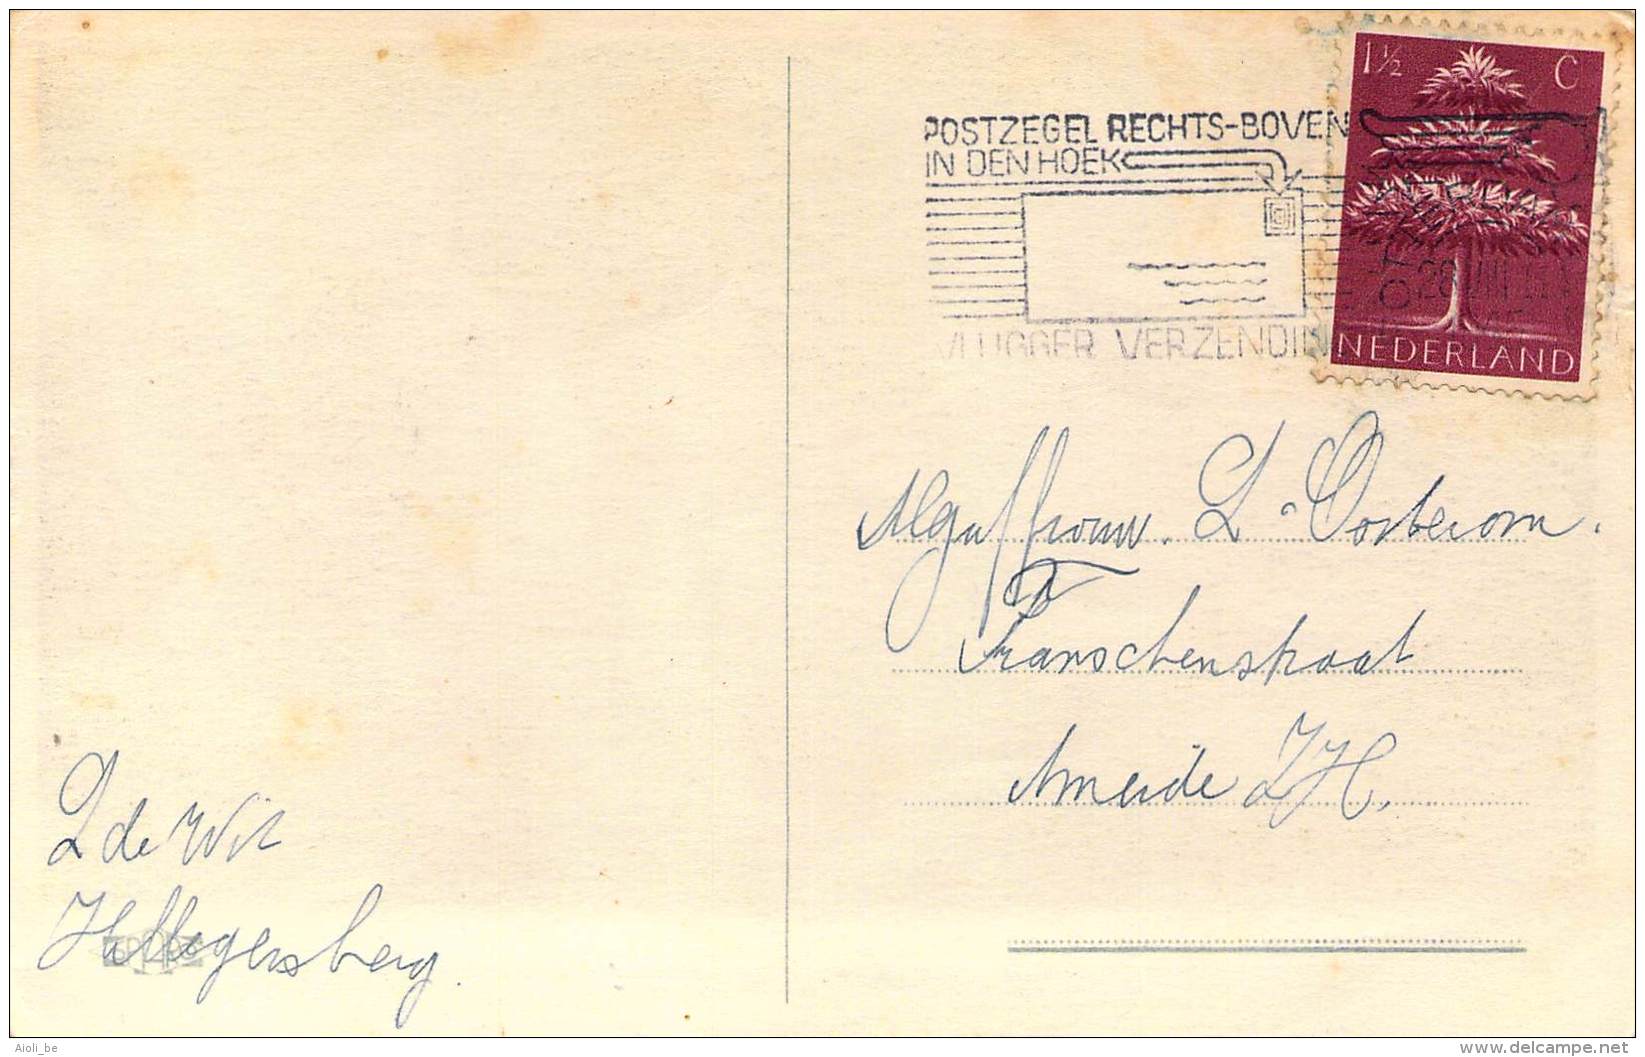 1½ C
POSTZEGEL RECHTS-BOVEN
IN DEN HOEK
VLUGGER VERZENDIN
NEDERLAND
L. Oosterom.
Franschenstraat
Ameide ZH.
L de Wit
Hillegersberg.
Aioli_be
delcampe.net